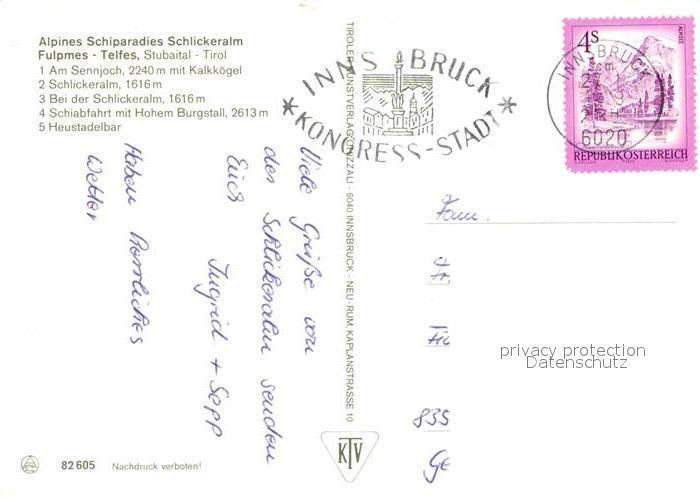 Alpines Schiparadies Schlickeralm
Fulpmes - Telfes, Stubaital - Tirol
1 Am Sennjoch, 2240 m mit Kalkkögel
2 Schlickeralm, 1616 m
3 Bei der Schlickeralm, 1616 m
4 Schiabfahrt mit Hohem Burgstall, 2613 m
5 Heustadelbar
INNSBRUCK
*KONGRESS-STADT*
4s
ALMSEE
INNSBRUCK
6020
REPUBLIK ÖSTERREICH
Viele Grüße von
der Schlickeralm senden
Euch
Ingrid + Sepp
Haben herrliches
Wetter
TIROLER KUNSTVERLAG CHIZZALI - 6040 INNSBRUCK - NEU-RUM, KAPLANSTRASSE 10
Fam.
835
Ge
privacy protection
Datenschutz
KTV
82 605 Nachdruck verboten!